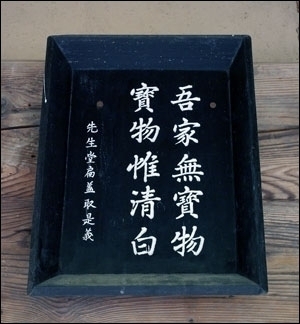 吾家無寶物
寶物惟清白
先生堂扁蓋取是義